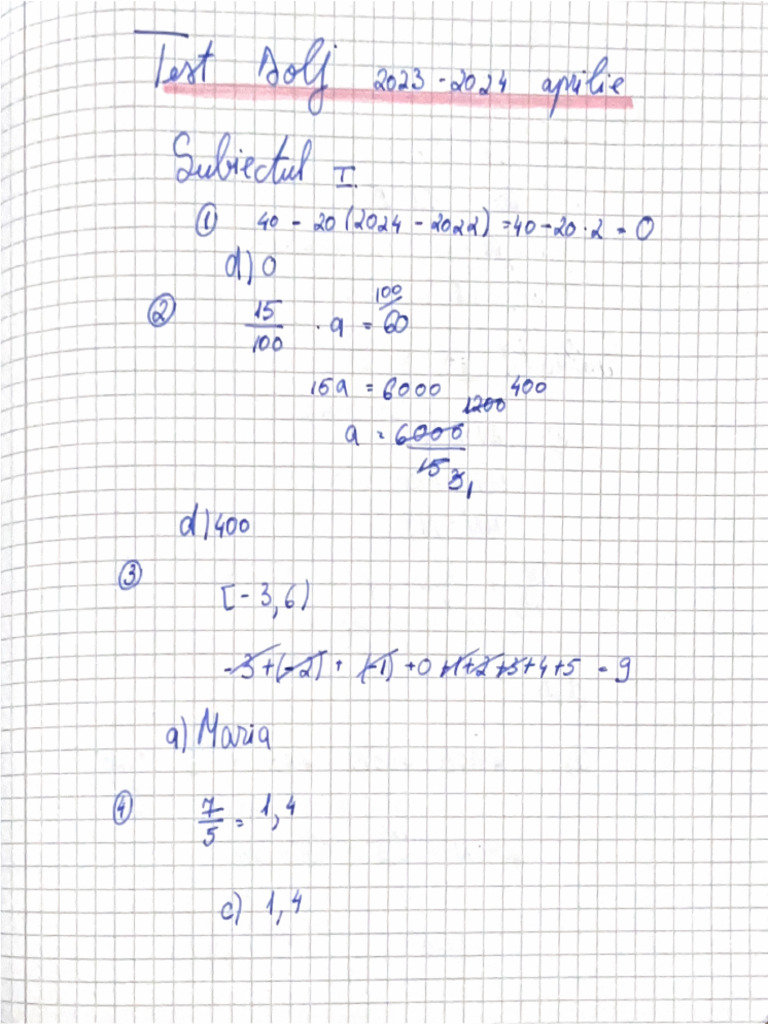 Test Dolj 2023-2024 aprilie
Subiectul I.
① 40 - 20 (2024 - 2022) = 40 - 20 · 2 = 0
d) 0
② 15/100 · a = 100/60
15a = 6000
a = 6000/15 1200 400 3 1
d) 400
③ [-3, 6)
-3 + (-2) + (-1) + 0 + 1 + 2 + 3 + 4 + 5 = 9
a) Maria
④ 7/5 = 1,4
c) 1,4